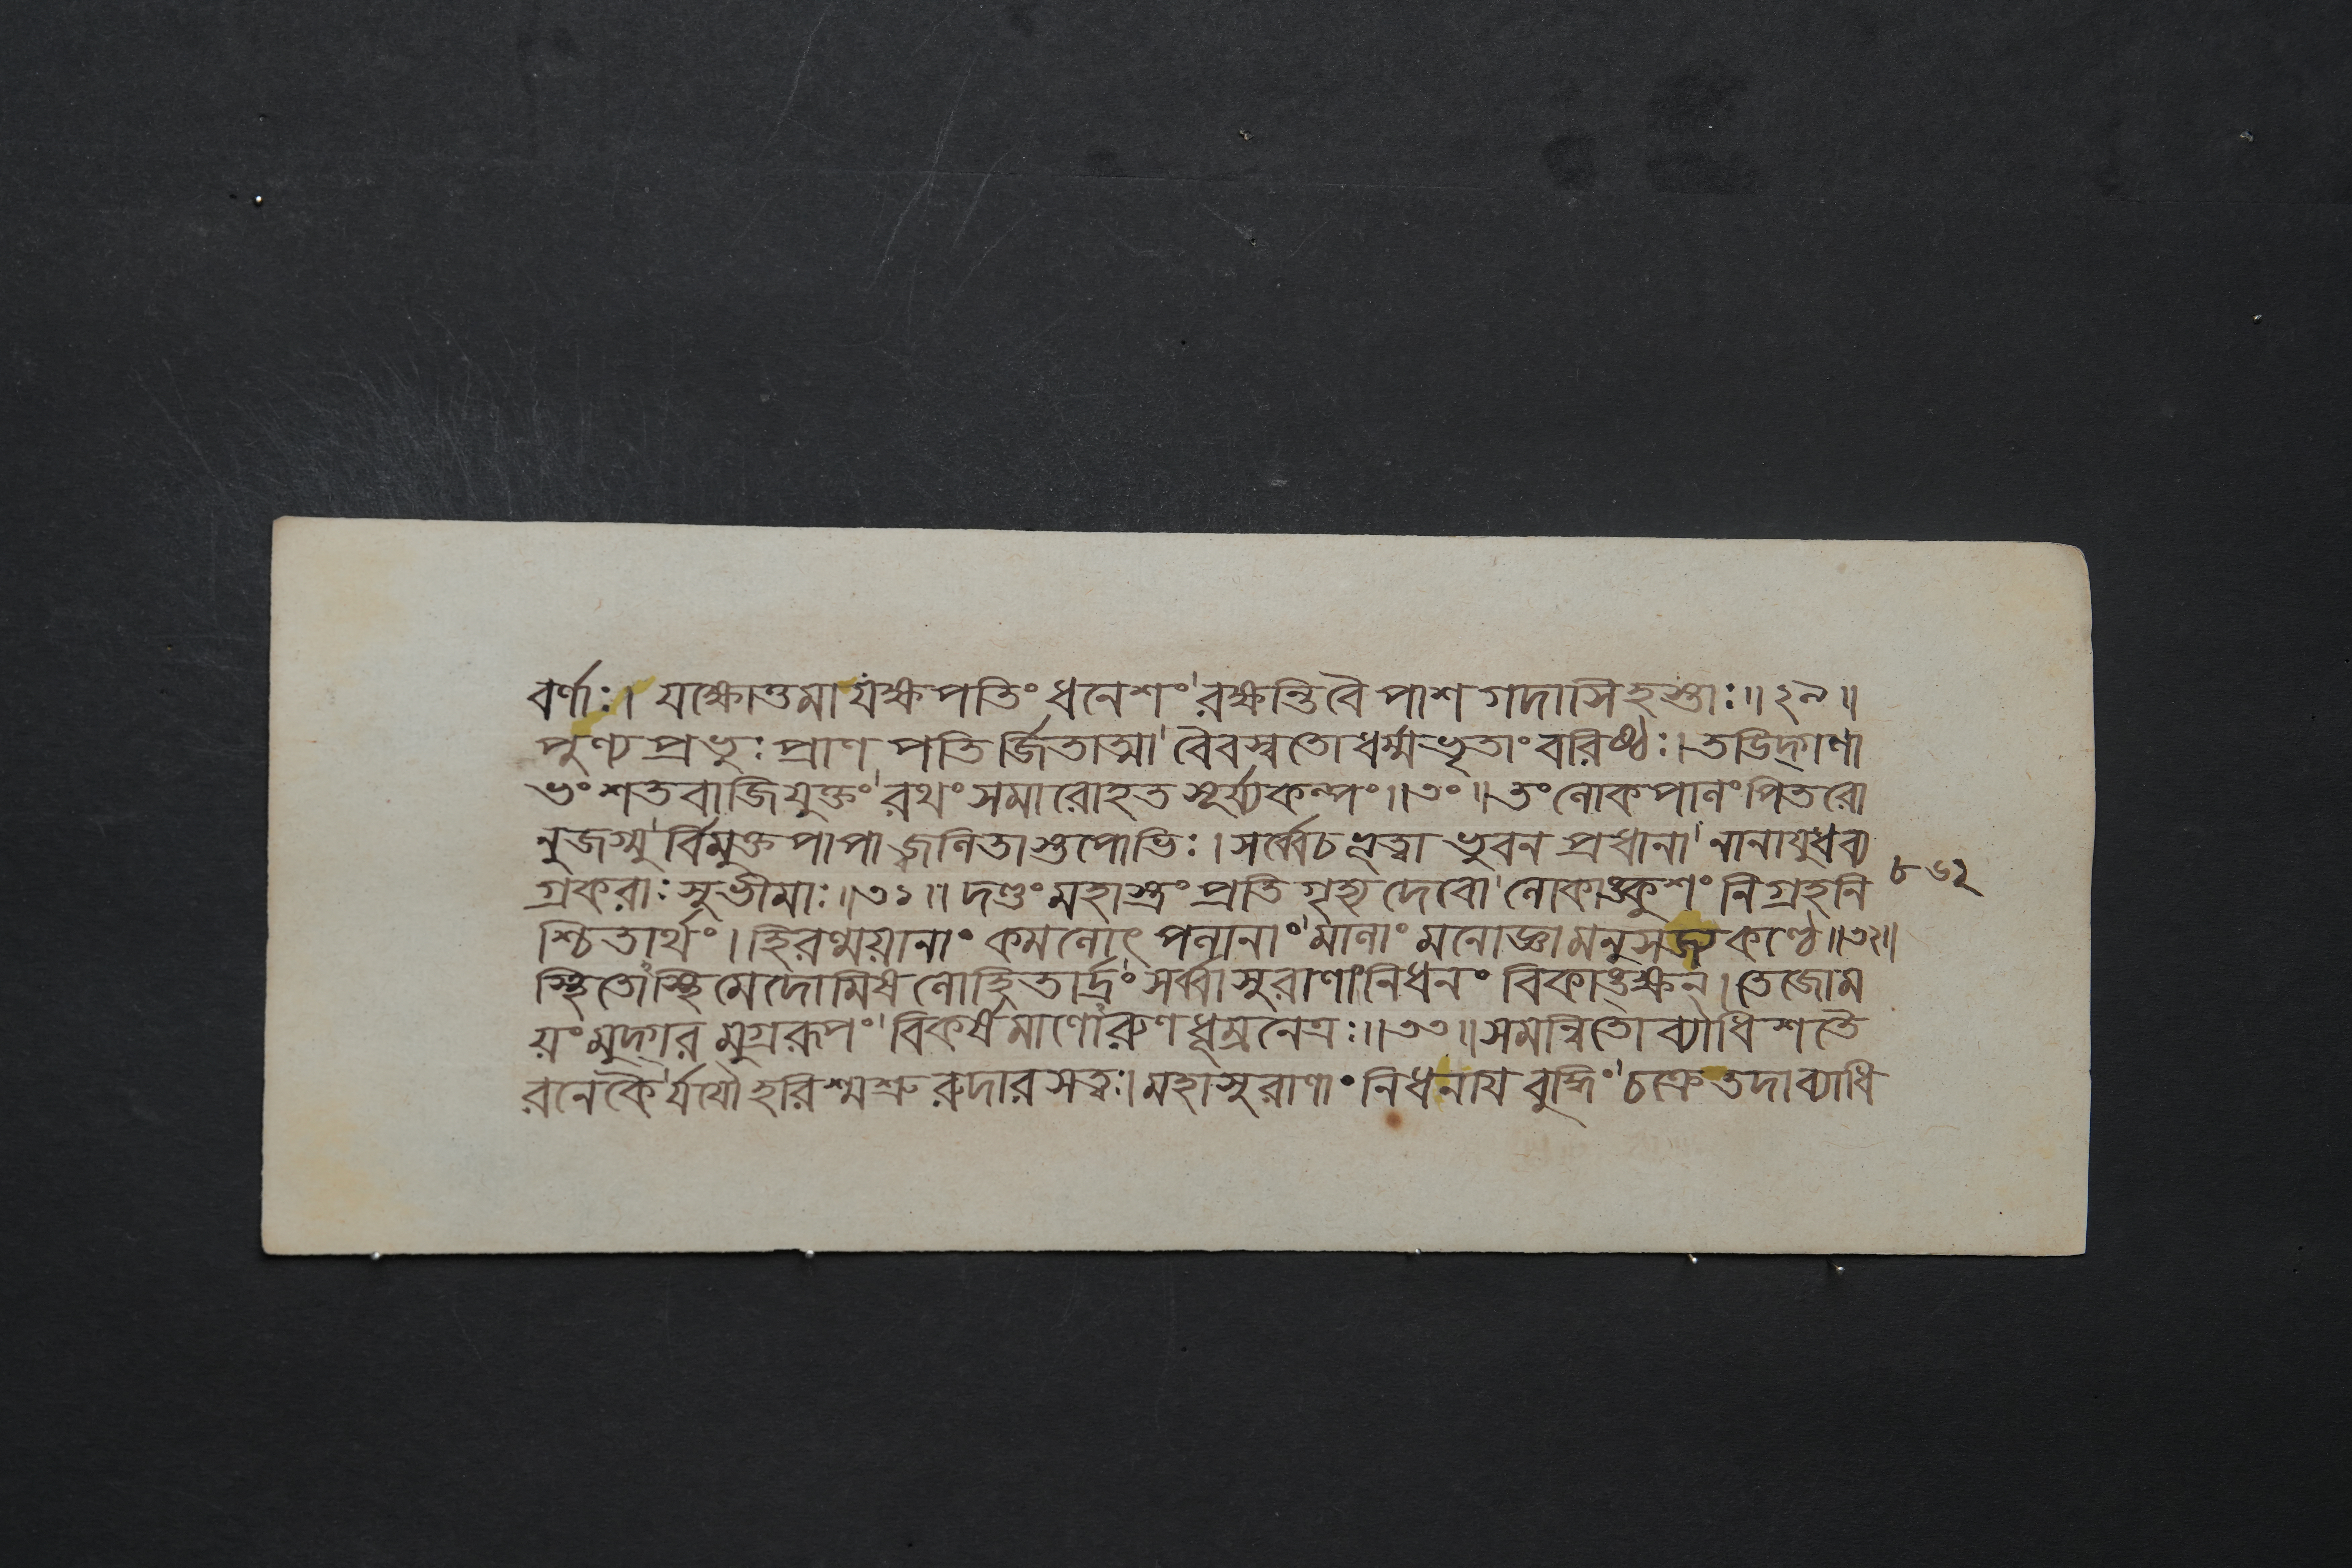 বর্ণাঃ। যক্ষোত্তমা যক্ষপতিং ধনেশং' রক্ষন্তি বৈ পাশ গদাসি হস্তাঃ॥২৯॥
পুণ্য প্রভুঃ প্রাণ পতি র্জিতাত্মা' বৈবস্বতো ধর্ম্মভৃতাং বরিষ্ঠঃ। তডিদ্গণা
ভং শতবাজি যুক্তং' রথং সমারোহত সূর্য্যকল্পং॥৩০॥ তং লোক পালং পিতরো
নুজগ্মু' র্বিমুক্ত পাপা জ্বলিতাস্তপোভিঃ। সর্ব্বে চ ভুবন প্রধানা' নানাযুধব্য
গ্রকরাঃ সুভীমাঃ॥৩১॥ দণ্ডং মহাস্ত্রং প্রতি গৃহ্য দেবো' লোকাঙ্কুশং নিগ্রহনি
৮৬২
শ্চিতার্থং। হিরণ্ময়ানাং কমলোৎপলানাং' মালাং মনোজ্ঞামনুসজ্য কণ্ঠে॥৩২॥
স্থিতোস্থি মেদোমিষ লোহিতার্দ্রং' সর্ব্বাসুরাণাং নিধনং বিকাঙ্ক্ষন্। তেজোম
য়ং মুদ্গর মুগ্ররূপং' বিকর্ষমাণোরুণ ধূম্রনেত্রঃ॥৩৩॥ সমান্বিতো ব্যাধি শতৈ
রনেকৈ' র্যযৌ হরিশ্মশ্রু রুদার সত্বঃ। মহাসুরাণাং নিধনায বুদ্ধিং' চক্রে তদা ব্যাধি